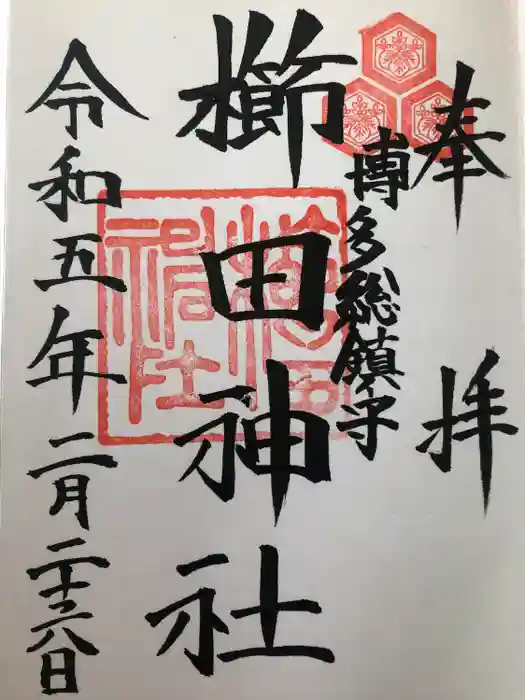 奉拝
博多総鎮守
櫛田神社
令和五年二月二十六日
櫛田
神社